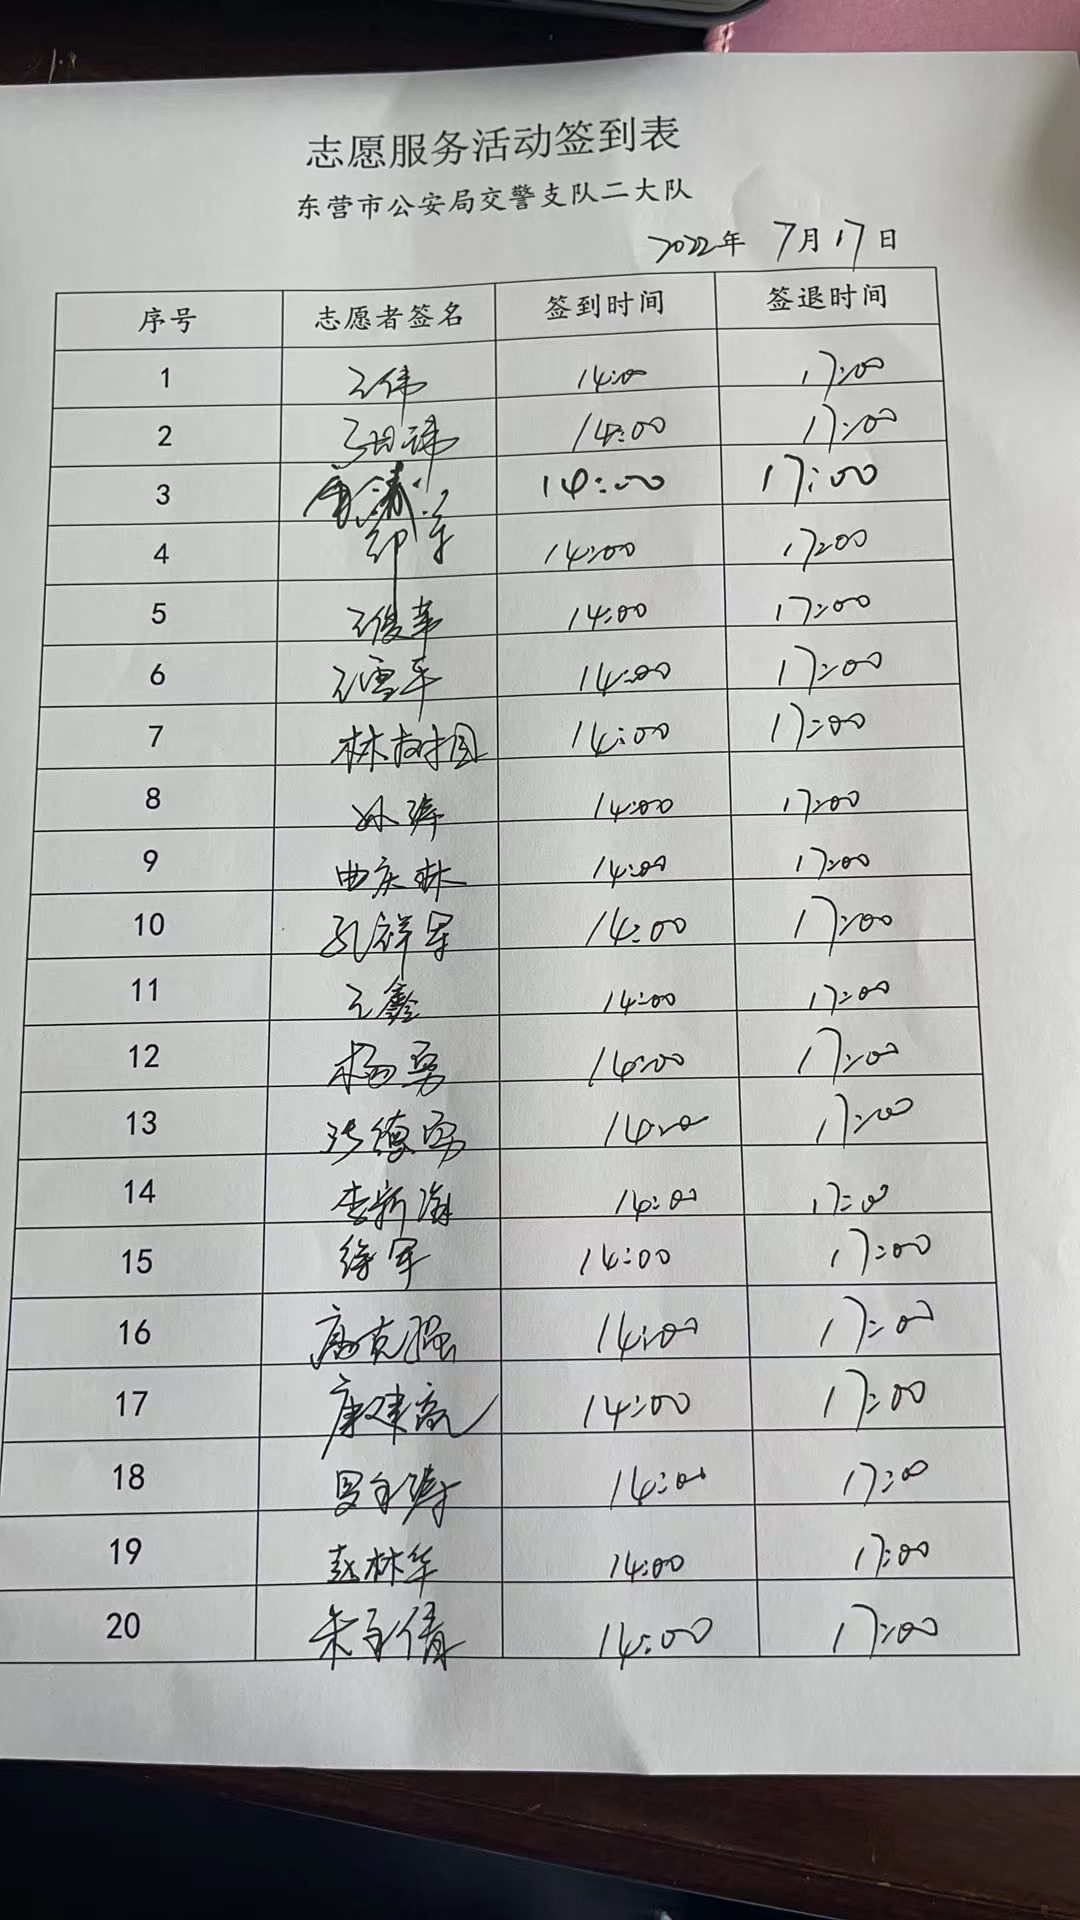 志愿服务活动签到表
东营市公安局交警支队二大队
2022年 7月17日
序号 志愿者签名 签到时间 签退时间
1 王伟 14:00 17:00
2 14:00 17:00
3 14:00 17:00
4 14:00 17:00
5 王俊华 14:00 17:00
6 王雪军 14:00 17:00
7 林树国 14:00 17:00
8 孙涛 14:00 17:00
9 曲庆林 14:00 17:00
10 孔祥军 14:00 17:00
11 王鑫 14:00 17:00
12 杨勇 14:00 17:00
13 张德勇 14:00 17:00
14 李新海 14:00 17:00
15 徐军 14:00 17:00
16 高克强 14:00 17:00
17 康建高 14:00 17:00
18 14:00 17:00
19 赵林华 14:00 17:00
20 朱永倩 14:00 17:00